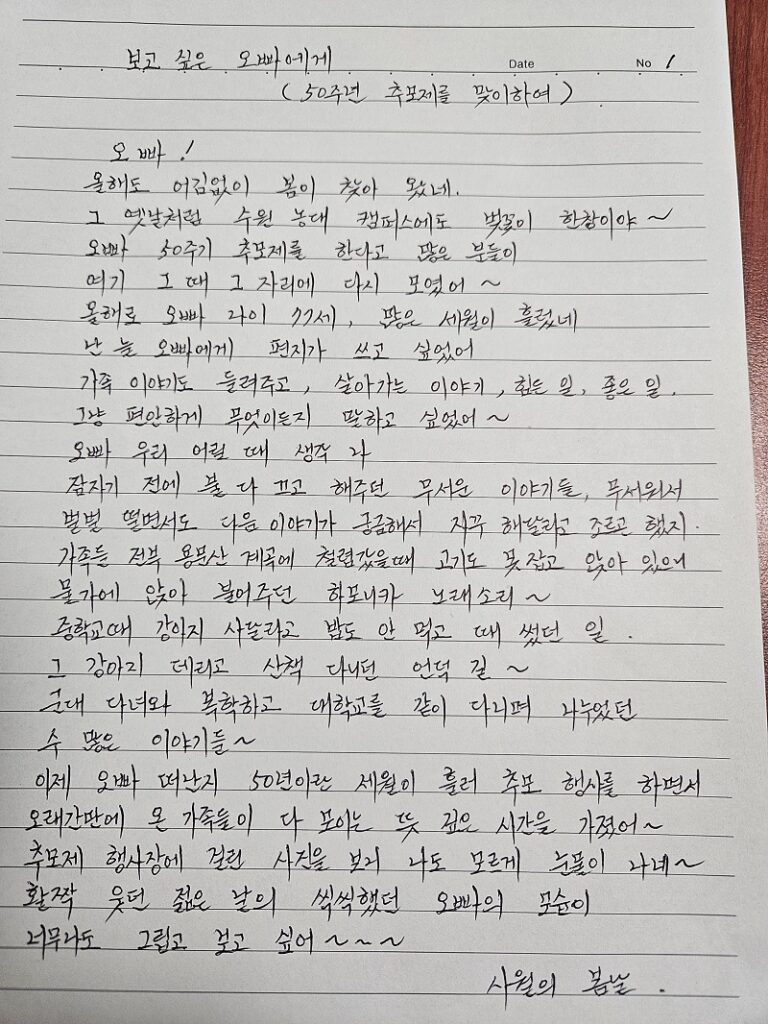 보고 싶은 오빠에게 Date No 1
( 50주년 추모제를 맞이하여 )
오빠 !
올해도 어김없이 봄이 찾아 왔네.
그 옛날처럼 수원 농대 캠퍼스에도 벚꽃이 한창이야 ~
오빠 50주기 추모제를 한다고 많은 분들이
여기 그 때 그 자리에 다시 모였어 ~
올해로 오빠 나이 77세, 많은 세월이 흘렀네
난 늘 오빠에게 편지가 쓰고 싶었어
가족 이야기도 들려주고, 살아가는 이야기, 힘든 일, 좋은 일.
그냥 편안하게 무엇이든지 말하고 싶었어 ~
오빠 우리 어릴 때 생각 나
잠자기 전에 불 다 끄고 해주던 무서운 이야기들, 무서워서
벌벌 떨면서도 다음 이야기가 궁금해서 자꾸 해달라고 조르곤 했지.
가족들 전부 용문산 계곡에 천렵갔을때 고기도 못 잡고 앉아 있으니
물가에 앉아 불어주던 하모니카 노래소리 ~
중학교때 강아지 사달라고 밥도 안 먹고 떼 썼던 일 .
그 강아지 데리고 산책 다니던 언덕 길 ~
군대 다녀와 복학하고 대학교를 같이 다니며 나누었던
수 많은 이야기들 ~
이제 오빠 떠난지 50년이란 세월이 흘러 추모 행사를 하면서
오래간만에 온 가족들이 다 모이는 뜻 깊은 시간을 가졌어 ~
추모제 행사장에 걸린 사진을 보러 나도 모르게 눈물이 나네 ~
활짝 웃던 젊은 날의 씩씩했던 오빠의 모습이
너무나도 그립고 보고 싶어 ~ ~ ~
사월의 봄날 .